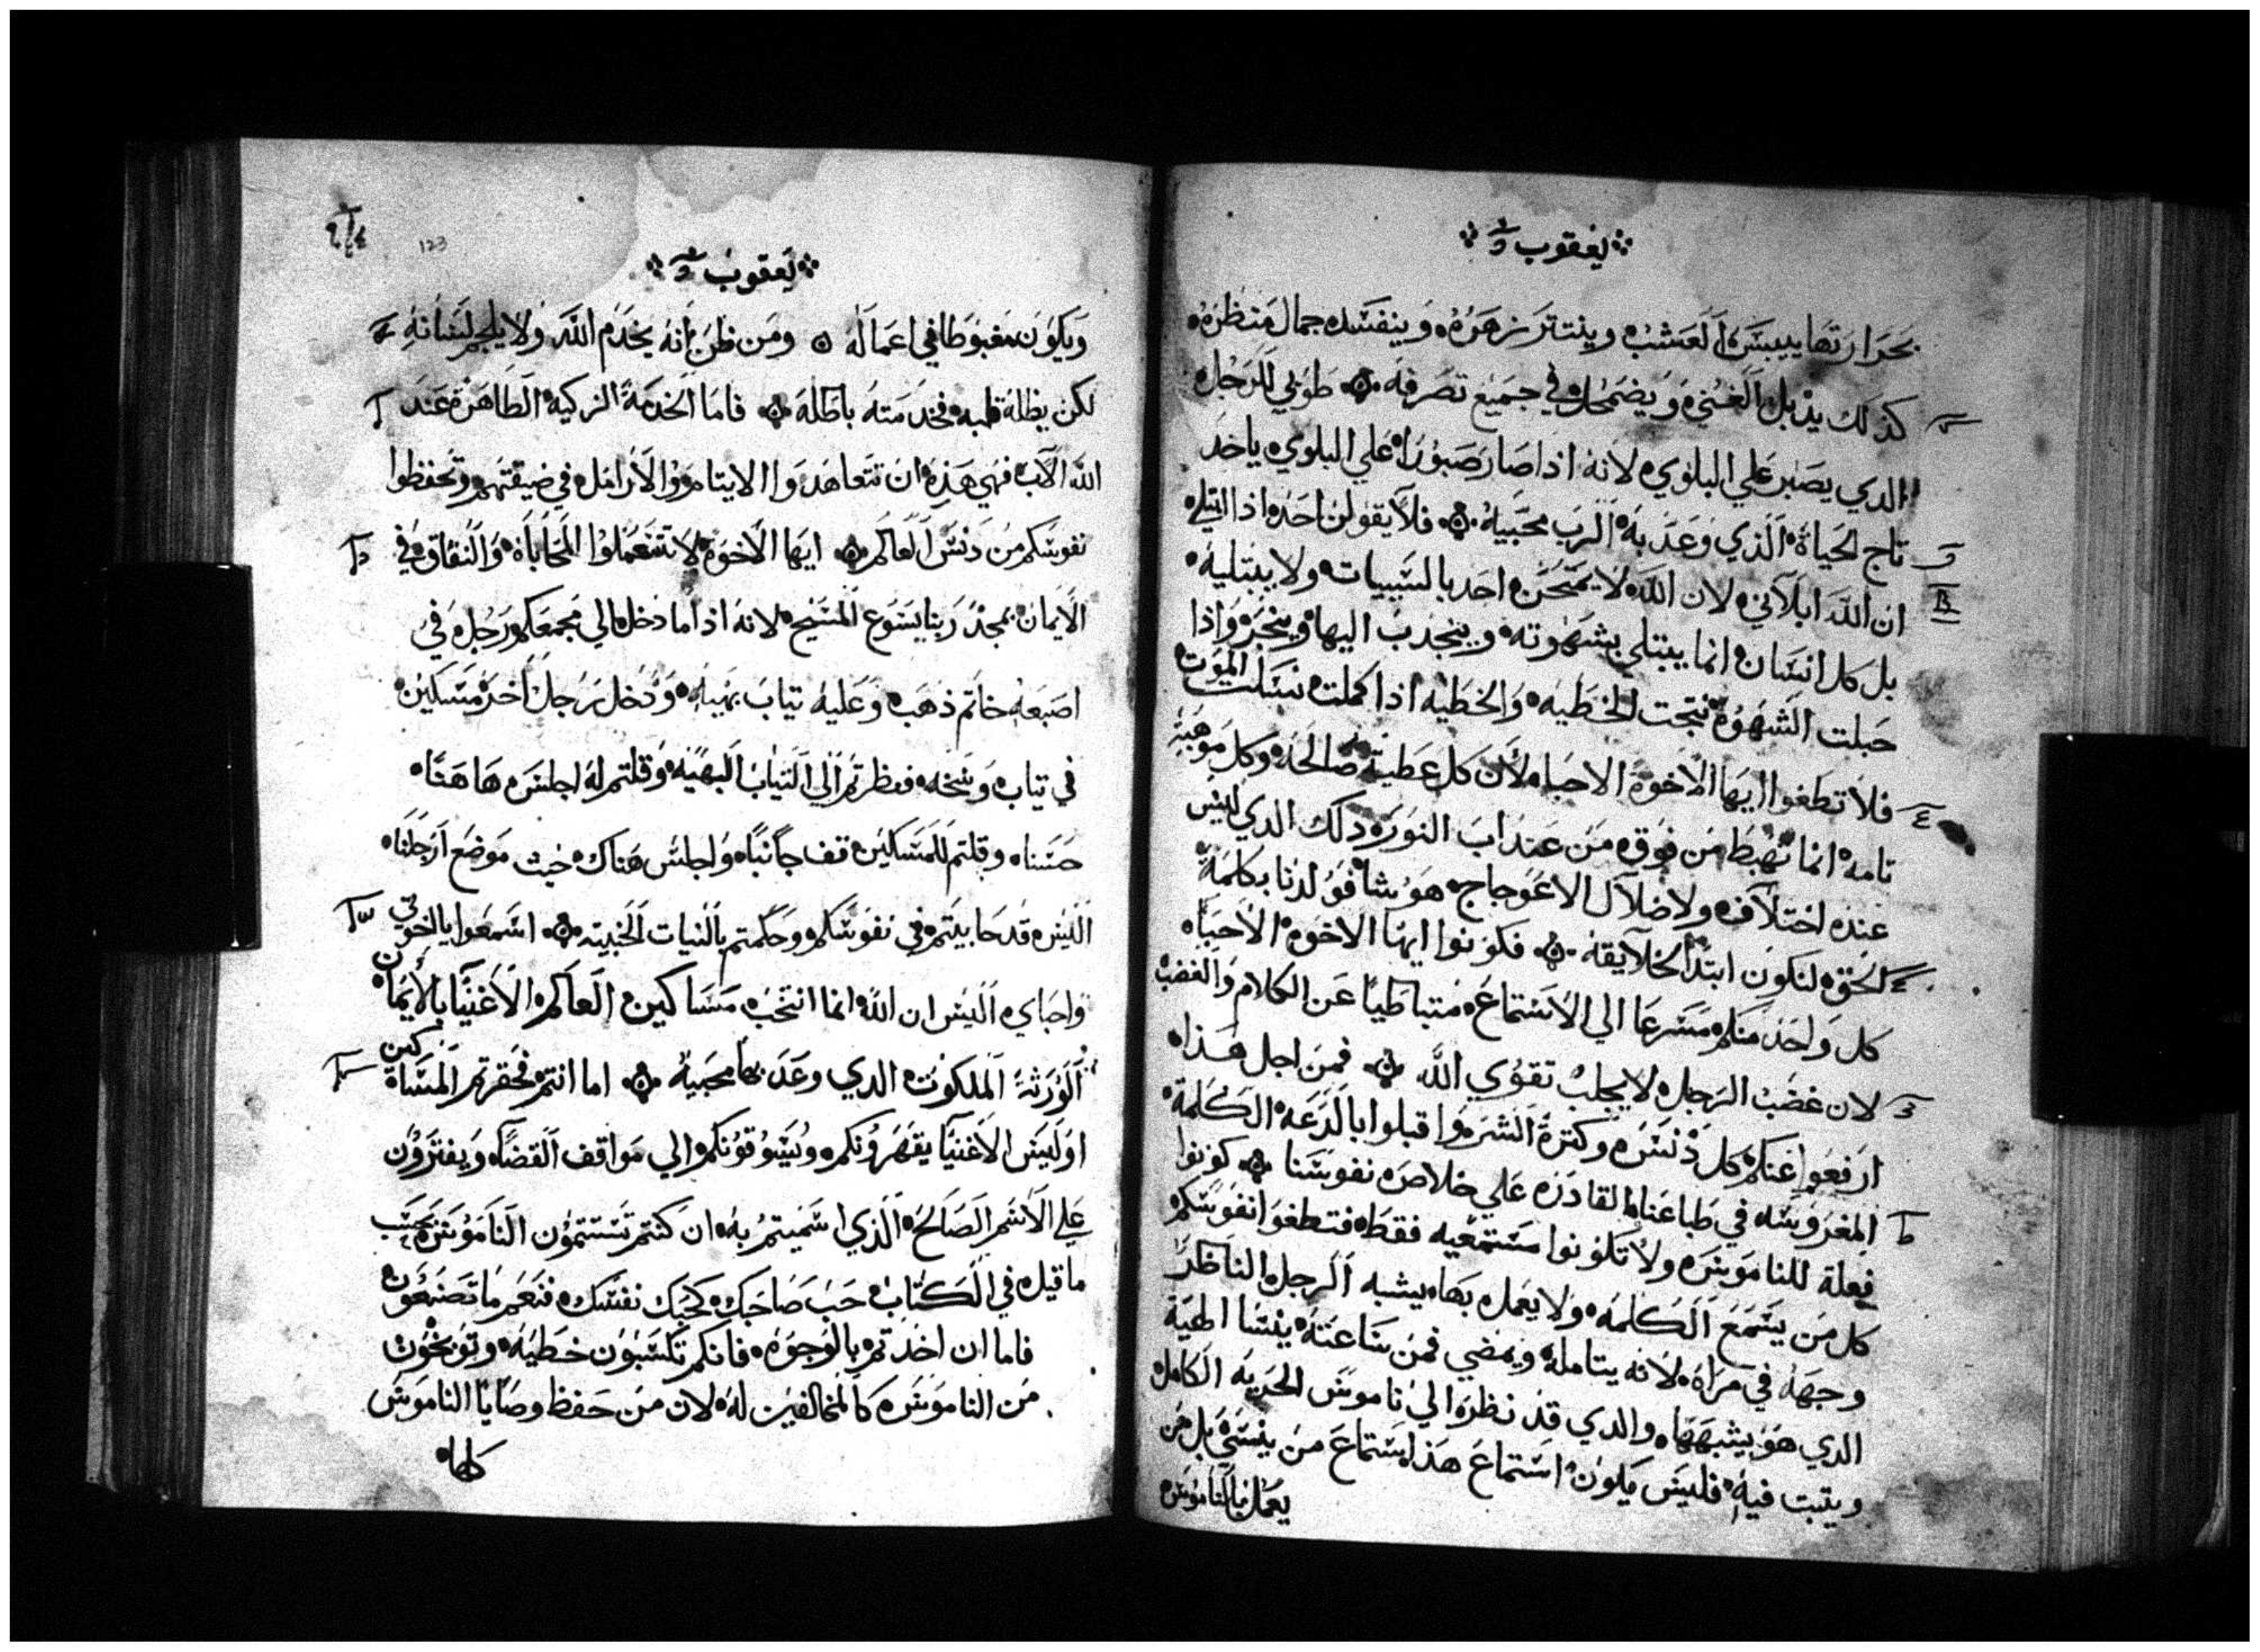 يعقوب
بحرارتها ييبس العشب وينتتر زهره وينفسد جمال منظره
كذلك يدبل الغني ويضمحل في جميع تصرفه طوبي للرجل
الدي يصبر علي البلوي لانه اذا صار صبورا علي البلوي ياخد
تاج الحياة الذي وعد به الرب محبيه فلا يقولن احد اذا ابتلي
ان الله ابلاني لان الله لا يمتحن احد بالسييات ولا يبتليه
بل كل انسان انما يبتلي بشهوته وينجدب اليها وينجر واذا
حبلت الشهوة نتجت الخطيه والخطيه اذا كملت نسلت الموت
فلا تطغوا ايها الاخوة الاحبا لان كل عطية صالحه وكل موهبة
تامه انما تهبط من فوق من عند اب النور دلك الدي ليس
عنده اختلاف ولا ضلال الاعوجاج هو شا فولدنا بكلمة
الحق لنكون ابتدا لخلايقه فكونوا ايها الاخوة الاحبا
كل واحد منكم مسرعا الي الاستماع متباطيا عن الكلام والغضب
لان غضب الرجل لا يجلب تقوي الله فمن اجل هذا
ارفعوا عنكم كل دنس وكترة الشر واقبلوا بالدعه الكلمة
المغروسه في طباعنا القادره علي خلاص نفوسنا كونوا
فعلة للناموس ولا تكونوا مستمعيه فقط فتطغوا نفوسكم
كل من يسمع الكلمه ولا يعمل بها يشبه الرجل الناظر
وجهه في مراة لانه يتامله ويمضي فمن ساعته ينسا الهية
الدي هو يشبهها والدي قد نظر الي ناموس الحريه الكامل
ويتبت فيه فليس يكون استماع هذا استماع من ينسي بل من
يعمل بالناموس
يعقوب
123
ويكون مغبوطا في اعماله ومن ظن انه يخدم الله ولا يلجم لسانه
لكن يظله قلبه فخدمته باطله فاما الخدمة الزكيه الطاهرة عند
الله الاب فهي هذه ان تتعاهدوا الايتام والارامل في ضيقتهم وتحفظوا
نفوسكم من دنس العالم ايها الاخوة لا تستعملوا المحاباة والنفاق في
الايمان بمجد ربنا يسوع المسيح لانه اذا ما دخل الي مجمعكم رجل في
اصبعه خاتم ذهب وعليه تياب بهيه ودخل رجل اخر مسكين
في تياب وسخه فنظرتم الي التياب البهيه وقلتم له اجلس هاهنا
حسنا وقلتم للمسكين قف جانبا واجلس هناك حيث موضع ارجلنا
اليس قد حابيتم في نفوسكم وحكمتم بالنيات الخبيته اسمعوا يا اخوتي
واحباي اليس ان الله انما انتخب مساكين العالم الاغنيا بالايمان
الورثة الملكوت الدي وعد بها محبيه اما انتم فحقرتم المساكين
اوليس الاغنيا يقهرونكم ويسوقونكم الي مواقف القضا ويفترون
علي الاسم الصالح الذي اسميتم به ان كنتم تستتمون الناموس بحسب
ما قيل في الكتاب حب صاحبك كحبك نفسك فنعم ما تصنعون
فاما ان اخدتم بالوجوه فانكم تكسبون خطيه وتوبخون
من الناموس كالمخالفين له لان من حفظ وصايا الناموس
كلها